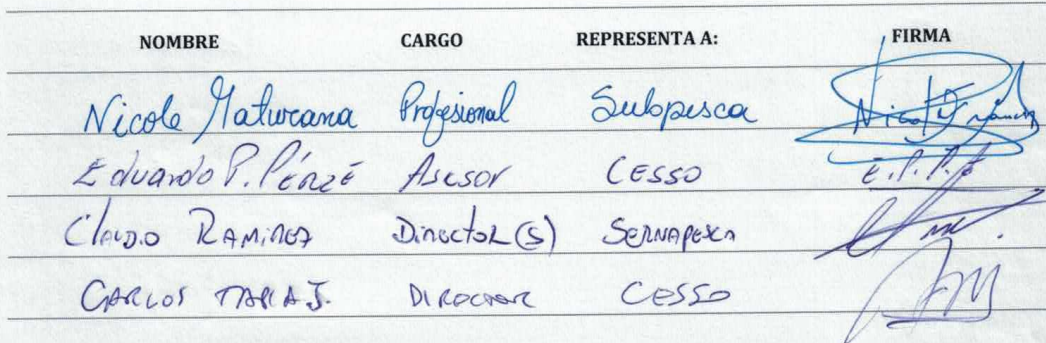 NOMBRE CARGO REPRESENTA A: FIRMA
Nicole Maturana Profesional Subpesca
Eduardo P. Asesor CESSO E.P.P.
Claudio RAMIREZ Director(S) SERNAPESCA
CARLOS TAPIA J. DIRECTOR CESSO